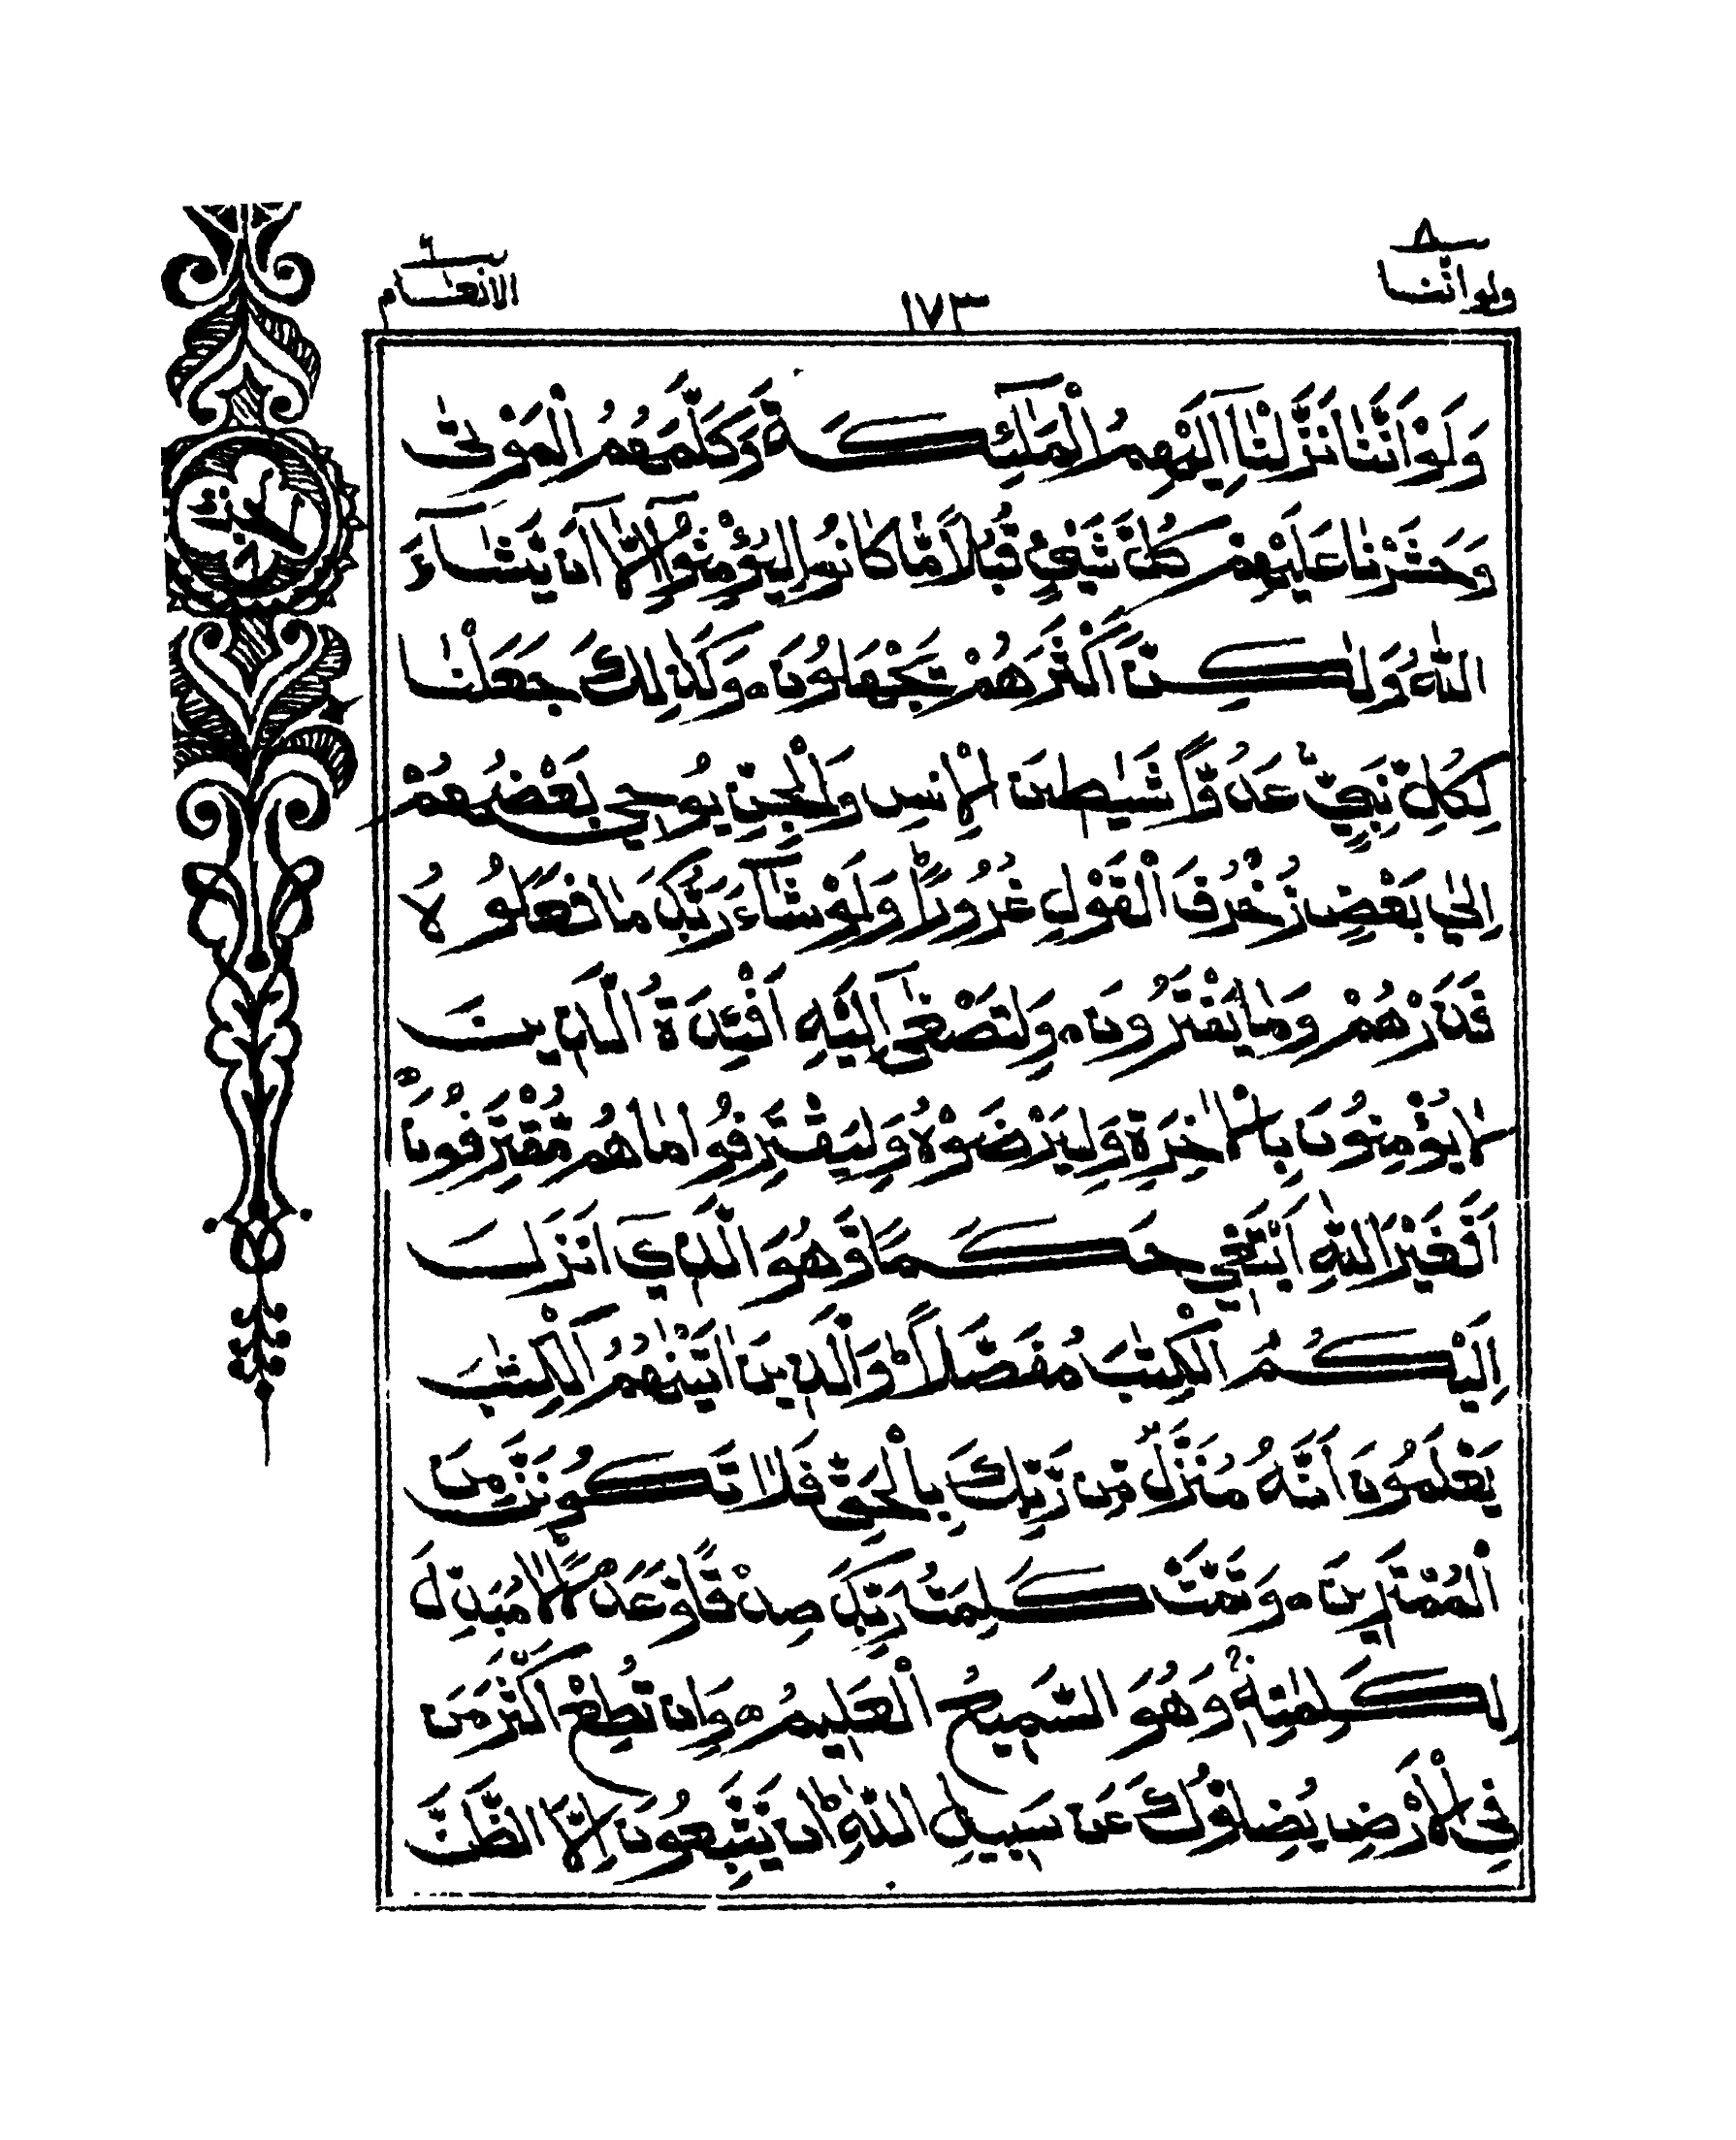 ٨
ولواننا
١٧٣
٦
الانعام
وَلَوْاَنَّنَا نَزَّلْنَآ اِلَيْهِمُ الْمَلٰٓئِكَةَ وَكَلَّمَهُمُ الْمَوْتٰى
وَحَشَرْنَا عَلَيْهِمْ كُلَّ شَيْءٍ قُبُلًا مَّا كَانُوا لِيُؤْمِنُوْٓا اِلَّآ اَنْ يَّشَآءَ
اللّٰهُ وَلٰكِنَّ اَكْثَرَهُمْ يَجْهَلُوْنَ ۝ وَكَذٰلِكَ جَعَلْنَا
لِكُلِّ نَبِيٍّ عَدُوًّا شَيٰطِيْنَ الْاِنْسِ وَالْجِنِّ يُوْحِيْ بَعْضُهُمْ
اِلٰى بَعْضٍ زُخْرُفَ الْقَوْلِ غُرُوْرًا ؕ وَلَوْ شَآءَ رَبُّكَ مَا فَعَلُوْهُ
فَذَرْهُمْ وَمَا يَفْتَرُوْنَ ۝ وَلِتَصْغٰٓى اِلَيْهِ اَفْئِدَةُ الَّذِيْنَ
لَا يُؤْمِنُوْنَ بِالْاٰخِرَةِ وَلِيَرْضَوْهُ وَلِيَقْتَرِفُوْا مَا هُمْ مُّقْتَرِفُوْنَ ۝
اَفَغَيْرَ اللّٰهِ اَبْتَغِيْ حَكَمًا وَّهُوَ الَّذِيْٓ اَنْزَلَ
اِلَيْكُمُ الْكِتٰبَ مُفَصَّلًا ؕ وَالَّذِيْنَ اٰتَيْنٰهُمُ الْكِتٰبَ
يَعْلَمُوْنَ اَنَّهٗ مُنَزَّلٌ مِّنْ رَّبِّكَ بِالْحَقِّ فَلَا تَكُوْنَنَّ مِنَ
الْمُمْتَرِيْنَ ۝ وَتَمَّتْ كَلِمَتُ رَبِّكَ صِدْقًا وَّعَدْلًا ؕ لَا مُبَدِّلَ
لِكَلِمٰتِهٖ ۚ وَهُوَ السَّمِيْعُ الْعَلِيْمُ ۝ وَاِنْ تُطِعْ اَكْثَرَ مَنْ
فِي الْاَرْضِ يُضِلُّوْكَ عَنْ سَبِيْلِ اللّٰهِ ؕ اِنْ يَّتَّبِعُوْنَ اِلَّا الظَّنَّ